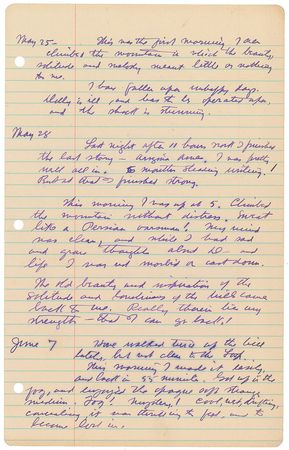 May 25 — This was the first morning I ever
climbed the mountain in which the beauty,
solitude and melody meant little or nothing
to me.
I have fallen upon unhappy days.
Dolly is ill, and has to be operated upon,
and the shock is stunning.
May 28
Last night after 11 hours work I finished
the last story — Arizona . I was pretty
well all in. 5 months steady writing!
But at that I finished strong.
This morning I was up at 5. Climbed
the mountain without distress. Sweat
like a Persian . My mind
was clear, and while I had sad
and grave thoughts about D — and
life I was not morbid or cast down.
The old beauty and inspiration of the
solitude and loneliness of the hills came
back to me. Really therein lies my
strength — that I can go back!
June 7 Have walked twice up the hill
lately, but not clear to the top.
This morning I made it easily,
and back in 55 minutes. Got up in the
fog, and enjoyed the opaque soft strange
medium. Fog! Mystery! Cool, wet, drifting,
concealing, it was something to feel, and to
become lost in.